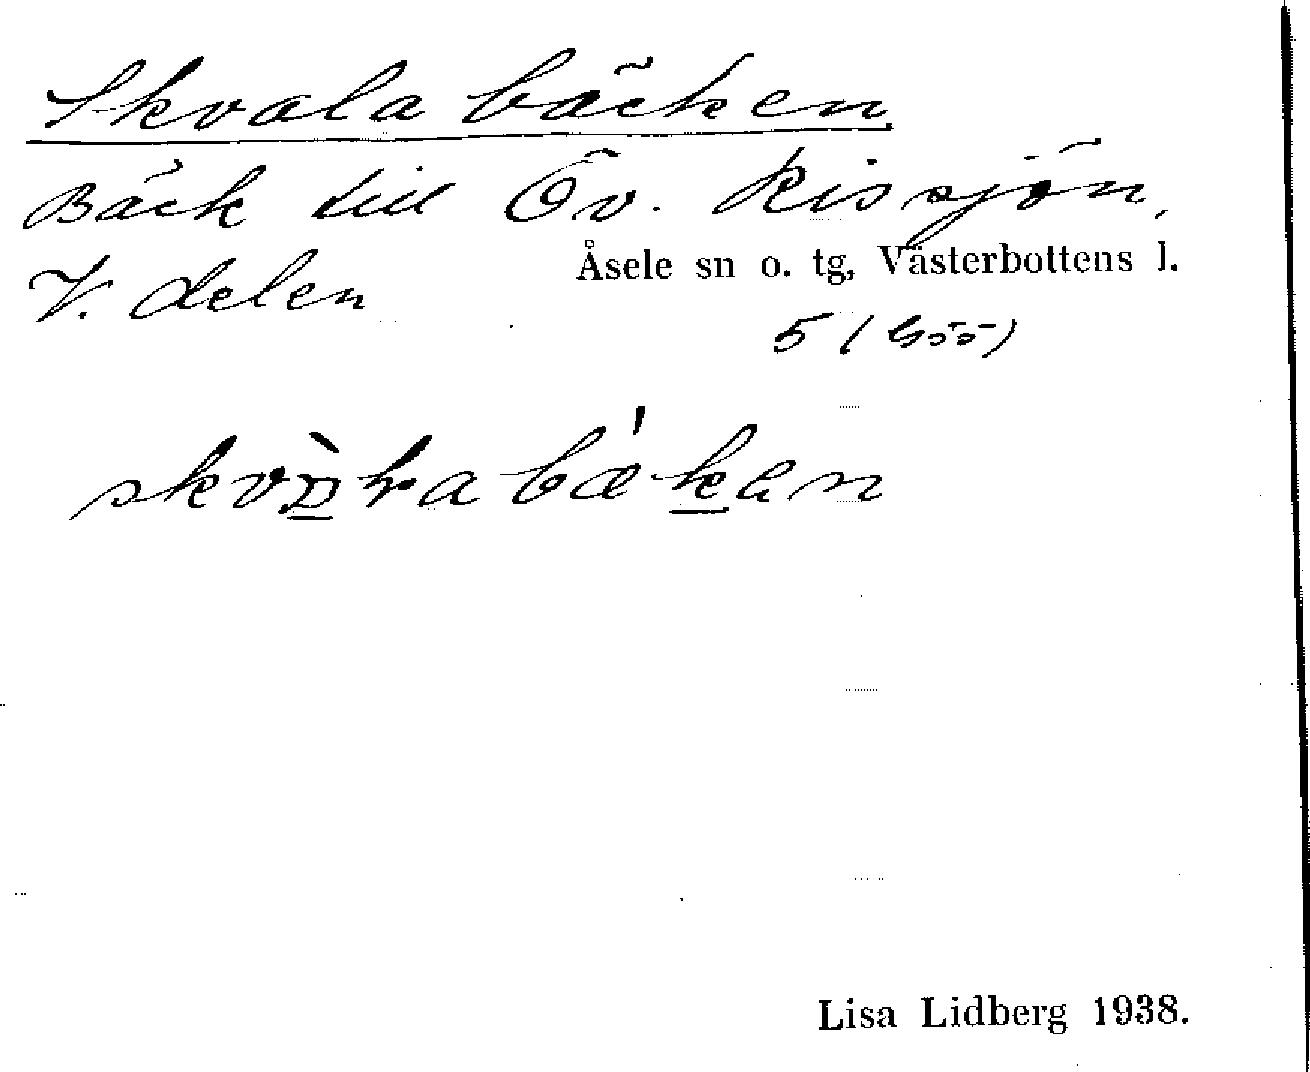 Skvalabäcken
Bäck till Öv. Rissjön,
V. delen
Åsele sn o. tg, Västerbottens l.
5 (böö)
Lisa Lidberg 1938.